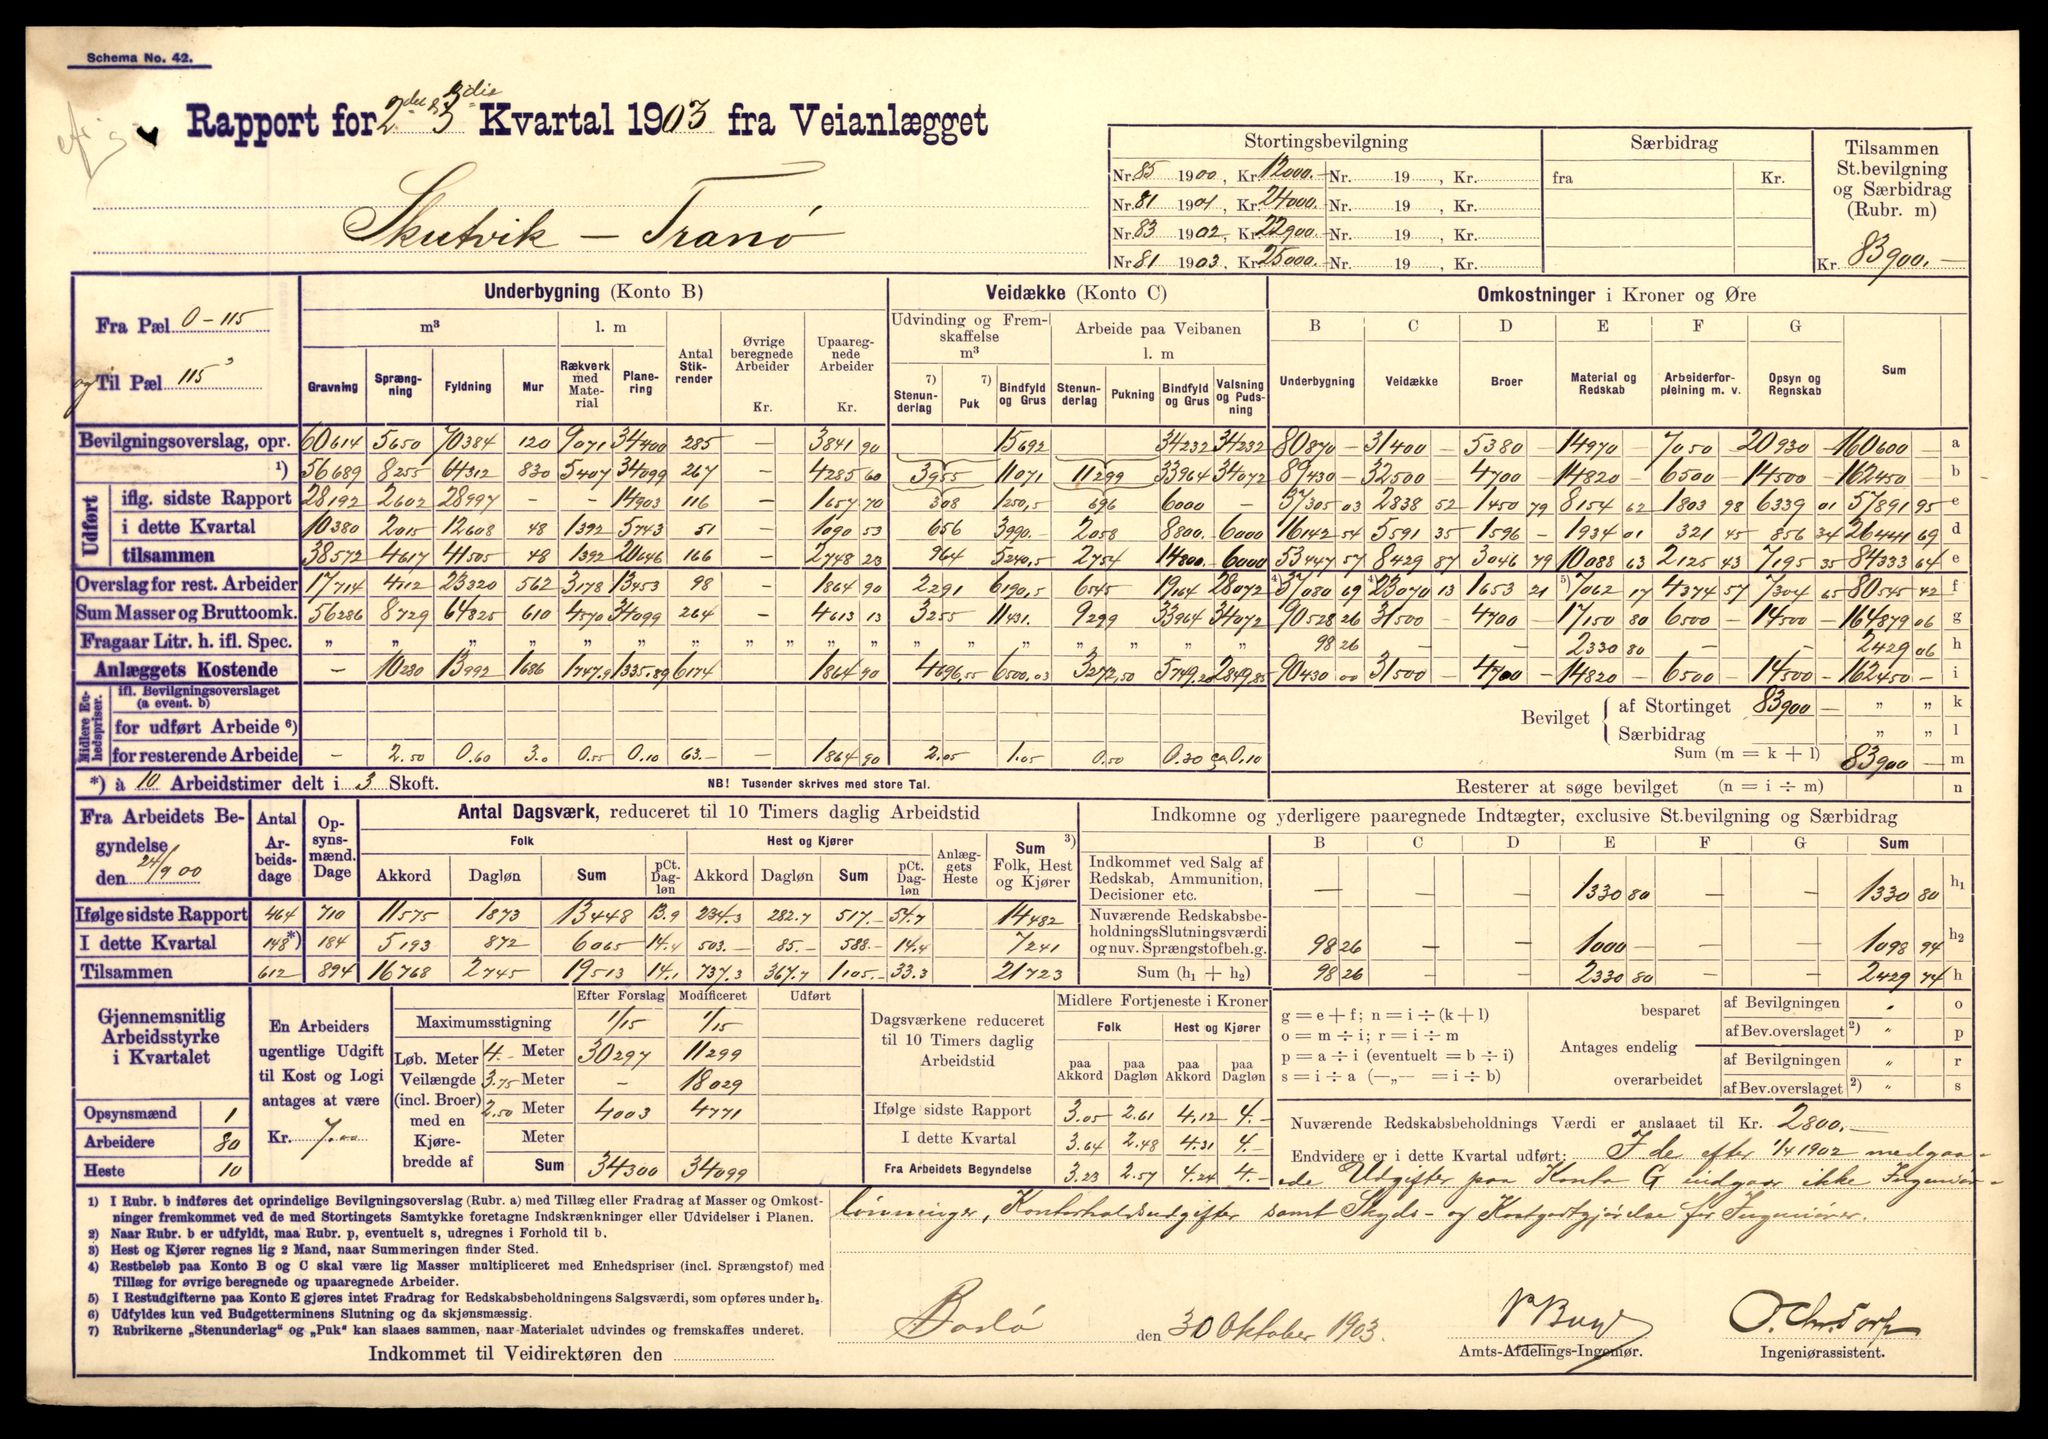 Schema No. 42.
Rapport for 2det & 3die Kvartal 1903 fra Veianlægget
Skutvik – Tranö
Stortingsbevilgning Særbidrag Tilsammen St.bevilgning og Særbidrag (Rubr. m)
Nr. 85 1900, Kr. 12000.- Nr. 19 , Kr. fra Kr.
Nr. 81 1901 Kr. 24000.- Nr. 19 , Kr.
Nr. 83 1902, Kr. 22900.- Nr. 19 , Kr.
Nr. 81 1903, Kr. 25000.- Nr. 19 , Kr. Kr. 83900.-
Fra Pæl 0-115
og Til Pæl 115³
Underbygning (Konto B) Veidække (Konto C) Omkostninger i Kroner og Øre
m³ l. m Antal Stikrender Øvrige beregnede Arbeider Kr. Upaaregnede Arbeider Kr. Udvinding og Fremskaffelse m³ Arbeide paa Veibanen l. m B C D E F G Sum
Gravning Sprængning Fyldning Mur Rækværk med Materiale Planering 7) Stenunderlag 7) Puk Bindfyld og Grus Stenunderlag Pukning Bindfyld og Grus Valsning og Pudsning Underbygning Veidække Broer Material og Redskab Arbeiderforplelning m. v. Opsyn og Regnskab
Bevilgningsoverslag, opr. 60614 5650 70384 120 9071 34400 285 – 3841 90 15692 34232 34232 80870 – 31400 – 5380 – 14970 – 7050 – 20930 – 160600 – a
1) 56689 8255 64312 830 5407 34099 267 – 4285 60 3955 11071 11299 33964 34072 89430 – 32500 – 4700 – 14820 – 6500 – 14500 – 162450 – b
Udført
iflg. sidste Rapport 28192 2602 28997 – – 14903 116 – 1657 70 308 1250,5 696 6000 – 37305 03 2838 52 1450 79 8154 62 1803 98 6339 01 57891 95 c
i dette Kvartal 10380 2015 12608 48 1392 5743 51 – 1090 53 656 3990.- 2058 8800.- 6000 16142 54 5591 35 1596 – 1934 01 321 45 856 34 26441 69 d
tilsammen 38572 4617 41505 48 1392 20646 166 – 2748 23 964 5240,5 2754 14800.- 6000 53447 57 8429 87 3046 79 10088 63 2125 43 7195 35 84333 64 e
Overslag for rest. Arbeider 17714 4112 23320 562 3178 13453 98 – 1864 90 2291 6190,5 6545 19164 28072 4) 37080 69 4) 23070 13 1653 21 5) 7062 17 4374 57 7304 65 80545 42 f
Sum Masser og Bruttoomk. 56286 8729 64825 610 4570 34099 264 – 4613 13 3255 11431.- 9299 33964 34072 90528 26 31500 – 4700 – 17150 80 6500 – 14500 – 164879 06 g
Fragaar Litr. h. ifl. Spec. „ „ „ „ „ „ „ „ „ „ „ „ „ „ „ „ „ „ 98 26 – – 2330 80 – – 2429 06 h
Anlæggets Kostende – 10230 13992 1686 1747.9 1335.89 6174 1864 90 4696,55 6500,03 3272,50 5749.20 2849.85 90430 00 31500 – 4700 – 14820 – 6500 – 14500 – 162450 – i
Midlere Enhedspriser:
ifl. Bevilgningsoverslaget (a event. b) Bevilget af Stortinget 83900 – „ „ k
for udført Arbeide 6) Særbidrag „ „ l
for resterende Arbeide – 2.50 0.60 3.0 0.55 0.10 63.- – 1864 90 2.05 1.05 0.50 0.30 ca 0.10 Sum (m = k + l) 83900 – m
*) à 10 Arbeidstimer delt i 3 Skoft. NB! Tusender skrives med store Tal. Resterer at søge bevilget (n = i ÷ m) n
Fra Arbeidets Begyndelse den 24/9 00
Antal Arbeidsdage Opsynsmænd. Dage
Antal Dagsværk, reduceret til 10 Timers daglig Arbeidstid
Folk Hest og Kjører Anlæggets Heste Sum 3) Folk, Hest og Kjører
Akkord Dagløn Sum pCt. Dagløn Akkord Dagløn Sum pCt. Dagløn
Ifølge sidste Rapport 464 710 11575 1873 13448 13.9 234.3 282.7 517.- 54.7 14482
I dette Kvartal 148*) 184 5193 872 6065 14.4 503.- 85.- 588.- 14.4 7241
Tilsammen 612 894 16768 2745 19513 14.1 737.3 367.7 1105.- 33.3 21723
Indkomne og yderligere paaregnede Indtægter, exclusive St.bevilgning og Særbidrag
B C D E F G Sum
Indkommet ved Salg af Redskab, Ammunition, Decisioner etc. – – – 1330 80 – – 1330 80 h₁
Nuværende Redskabsbeholdnings Slutningsværdi og nuv. Sprængstofbeh.g. 98 26 – – 1000 – – – 1098 94 h₂
Sum (h₁ + h₂) 98 26 – – 2330 80 – – 2429 74 h
Gjennemsnitlig Arbeidsstyrke i Kvartalet
Opsynsmænd 1
Arbeidere 80
Heste 10
En Arbeiders ugentlige Udgift til Kost og Logi antages at være
Kr. 7.00
Efter Forslag Modificeret Udført
Maximumsstigning 1/15 1/15
Løb. Meter Veilængde (incl. Broer) med en Kjørebredde af
4.- Meter 30297 11299
3.75 Meter – 18029
2.50 Meter 4003 4771
Meter
Sum 34300 34099
Dagsværkene reduceret til 10 Timers daglig Arbeidstid
Midlere Fortjeneste i Kroner
Folk Hest og Kjører
paa Akkord paa Dagløn paa Akkord paa Dagløn
Ifølge sidste Rapport 3.05 2.61 4.12 4.-
I dette Kvartal 3.64 2.48 4.31 4.-
Fra Arbeidets Begyndelse 3.23 2.57 4.24 4.-
g = e + f; n = i ÷ (k + l)
o = m ÷ i; r = i ÷ m
p = a ÷ i (eventuelt = b ÷ i)
s = i ÷ a (—„— = i ÷ b)
Antages endelig
besparet af Bevilgningen „ o
af Bev.overslaget 2) „ p
overarbeidet af Bevilgningen „ r
af Bev.overslaget 2) „ s
Nuværende Redskabsbeholdnings Værdi er anslaaet til Kr. 2800.-
Endvidere er i dette Kvartal udført: I de efter 1/4 1902 medgaa-
ede Udgifter paa Konto G indgaar ikke Ingeniør-
lønninger, Kontorholdsudgifter samt Skyds- og Kostgodtgjörelse for Ingeniører.
1) I Rubr. b indføres det oprindelige Bevilgningsoverslag (Rubr. a) med Tillæg eller Fradrag af Masser og Omkost-
ninger fremkommet ved de med Stortingets Samtykke foretagne Indskrænkninger eller Udvidelser i Planen.
2) Naar Rubr. b er udfyldt, maa Rubr. p, eventuelt s, udregnes i Forhold til b.
3) Hest og Kjører regnes lig 2 Mand, naar Summeringen finder Sted.
4) Restbeløb paa Konto B og C skal være lig Masser multipliceret med Enhedspriser (incl. Sprængstof) med
Tillæg for øvrige beregnede og upaaregnede Arbeider.
5) I Restudgifterne paa Konto E gjøres intet Fradrag for Redskabsbeholdningens Salgsværdi, som opføres under h₂.
6) Udfyldes kun ved Budgetterminens Slutning og da skjønsmæssig.
7) Rubrikerne „Stenunderlag“ og „Puk“ kan slaaes sammen, naar Materialet udvindes og fremskaffes underet.
Bodö den 30 Oktober 1903.
Amts-Afdelings-Ingeniør.
O. Chr. Torp
Ingeniørassistent.
Indkommet til Veidirektören den